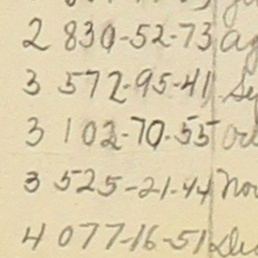 2 830-52-73 ag
3 572-95-41 Se
3 102-70-55 Oc
3 525-21-44 Nov
4 077-16-51 De